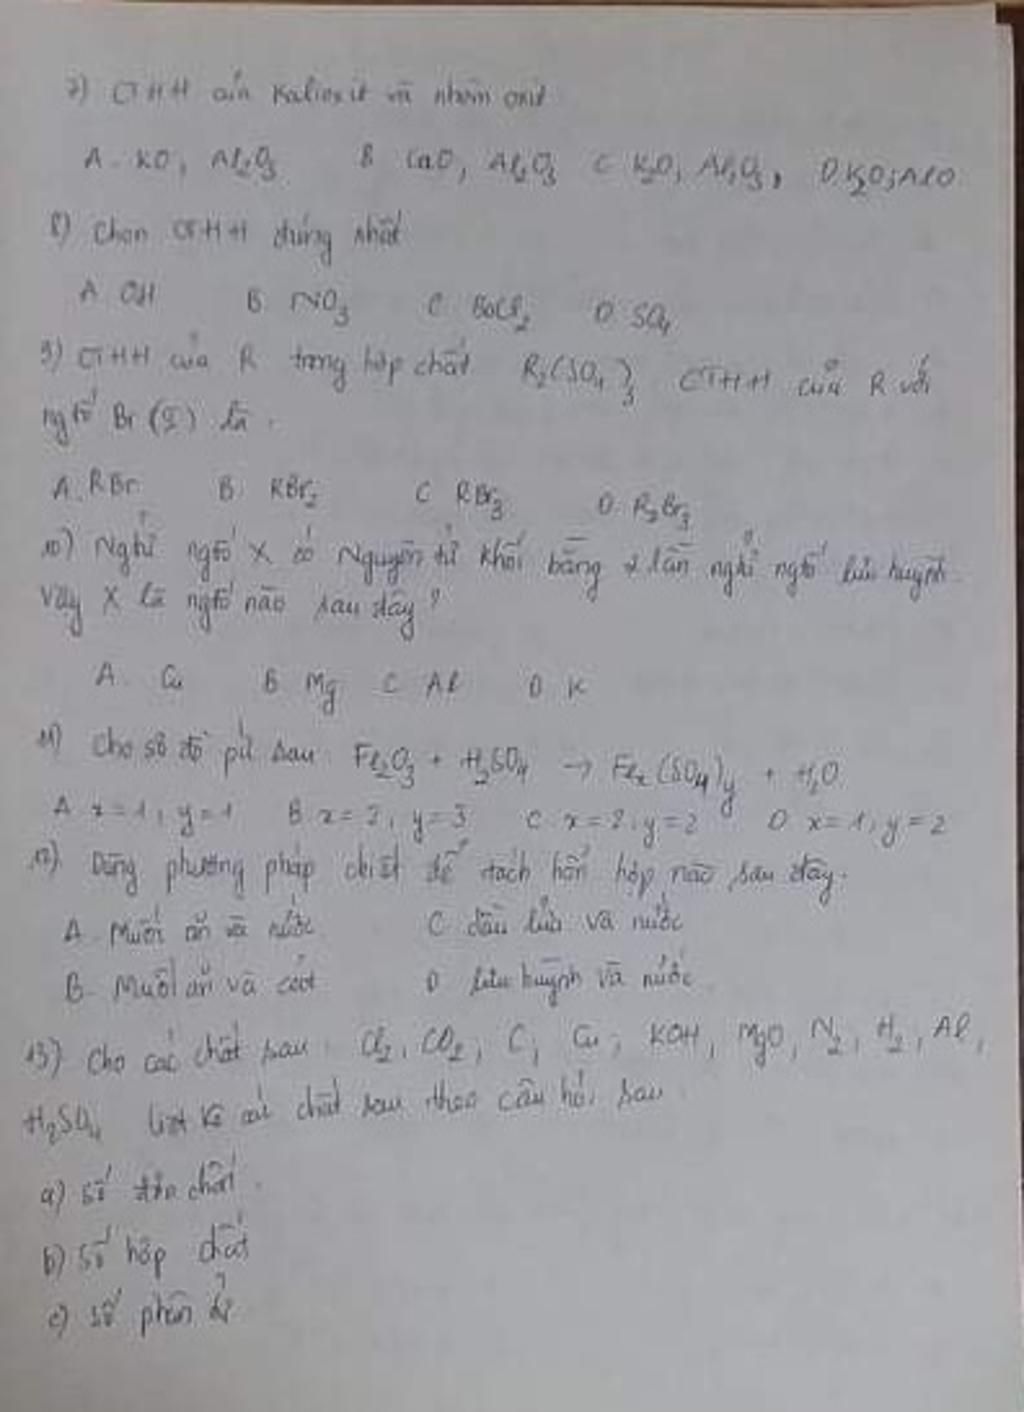 7) CTHH của Kalioxit và nhôm oxit
A. KO, Al₂O₃ B CaO, Al₂O₃ C K₂O, Al₂O₃, D. K₂O; AlO
8) Chọn CTHH đúng nhất
A. OH B. NO₃ C. BaCl₂ D. SO₄
9) CTHH của R trong hợp chất R₂(SO₄)₃ CTHH của R với
ngtố Br (I) là.
A. RBr B. RBr₂ C RBr₃ D. R₂Br₃
10) Ngtử ngtố X có Nguyên tử khối bằng 2 lần ngtử ngtố lưu huỳnh
Vậy X là ngtố nào sau đây?
A. Cu B Mg C Al D K
11) Cho sơ đồ pứ sau: Fe₂O₃ + H₂SO₄ → Feₓ(SO₄)y + H₂O
A x=1, y=1 B x=2, y=3 C x=2, y=2 D x=1, y=2
12) Dùng phương pháp chiết để tách hỗn hợp nào sau đây.
A. Muối ăn và nước C dầu lửa và nước
B. Muối ăn và cát D lưu huỳnh và nước
13) Cho các chất sau: Cl₂, CO₂, C, Cu, KOH, MgO, N₂, H₂, Al,
H₂SO₄ liệt kê các chất sau theo câu hỏi sau
a) số đơn chất.
b) số hợp chất
c) số phân tử